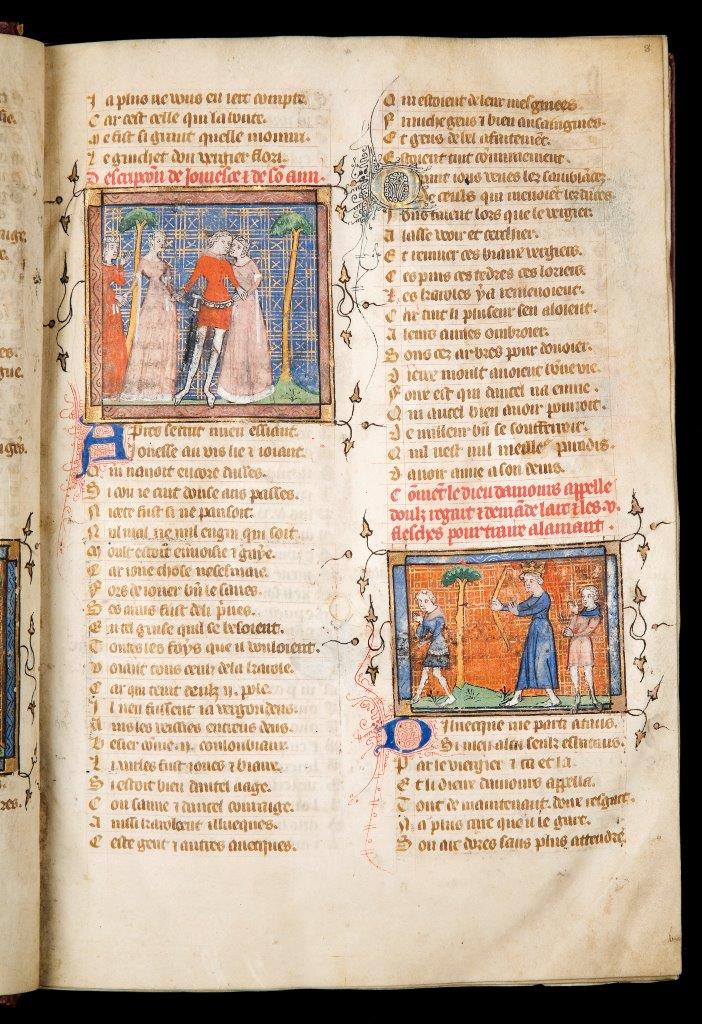 8
J a plus ne vous en iert compte.
C ar cest celle qui la voult.
Q e fist si grant quelle mouvrir.
L e guichet dou vergier flori.
D escripcion de Jonesce & de so ami
A Pres se tint mien essiant.
Jonesse au vis lie & ioiant.
Q ui navoit encore dusses.
S i com ie cuit douse ans passes.
N icete fust si ne pansoit.
N ul mal ne nul engin qui soit.
M oult estoit envoisie & gaye.
C ar ione chose ne sesmaie.
F ors de ioner bn le saves.
S es amis fust deli prives.
E n tel guise quil se besoient.
T outes les foys que il vouloient.
V oiant tous ceulz de la karole.
C ar qui tenit ceulz .ij. pole.
J l nen fussent ia vergondeus.
A ins les veissies entreus deus.
B esier come .ij. coulombiaux.
L i vales fust iones & biaux.
S i estoit bien dautel aage.
C om samie & dautel courage.
A nissi karoloent illueques.
C este gent & autres auecques.
Q ui estoient de leur mesgniees.
F ranche gens & bien ansaignies.
E t gens de bel afaitement.
E stoient tuit communement.
Q uant ious veues les samblances
De ceulz qui menoient les dances.
J ous talent lors que le vergier.
A lasse veoir et cerchier.
E t remirer ces biaux vergiers.
C es pins ces cedres ces loriers.
L es karoles ia remenoient.
C ar tuit li pluiseur sen aloient.
A leurs amies ombroier.
S ous ces arbres pour donoier.
D ieux moult avoient bone vie.
F ols est qui dautel na envie.
Q ui autel bien avoir pourroit.
D e meilleur bn se soufferroit.
Q uil nest nul meilleur paradis.
D avoir amie a son devis.
C oment le dieu damours appelle
doulz regart & demade larc & les .v.
flesches pour traire a lamant.
D Illecque me parti ataus.
Si men alai seulz esbatans.
P ar le vergier & ca et la.
E t li diex damours appella.
T out de maintenant. doux resgart.
N a plus cure que il le gart.
S on arc dores sans plus attendre.